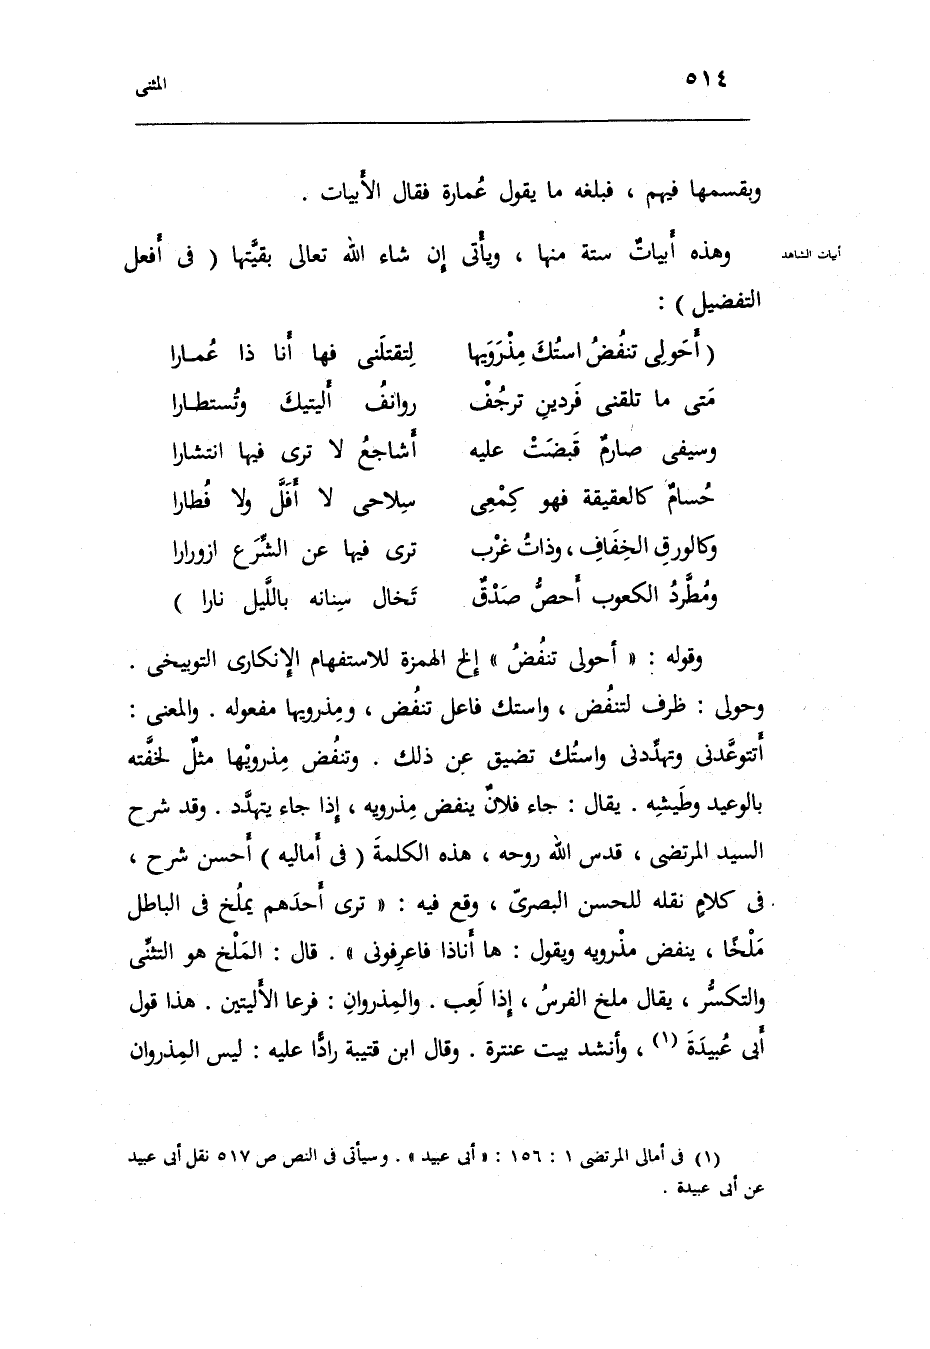 ٥١٤ المثنى
ويقسمها فيهم ، فبلغه ما يقول عُمارة فقال الأبيات .
أبيات الشاهد
وهذه أبياتٌ ستة منها ، ويأْتى إن شاء الله تعالى بقيَّتها ( فى أفعل
التفضيل ) :
( أَحَولِى تنفُضُ استُكَ مِذْرَوَيها لِتقتلَنى فها أنا ذا عُمـارا
مَتى ما تلقنى فَردينِ ترجُفْ روانفُ أَليتيكَ وتُستطـارا
وسيفى صارمٌ قَبضَتْ عليه أَشاجعُ لا ترى فيها انتشارا
حُسامٌ كالعقيقة فهو كِمْعِى سِلاحى لا أَفَلَّ ولا فُطارا
وكالورقِ الخِفَافِ ، وذاتُ غرْب ترى فيها عن الشَّرَع ازورارا
ومُطَّردُ الكعوب أحصُّ صَدْقٌ تَخال سِنانه باللَّيل نارا )
وقوله : « أحولى تنفُضُ » إلخ الهمزة للاستفهام الإنكارى التوبيخى .
وحولى : ظرف لتنفُض ، واستك فاعل تنفُض ، ومِذرويها مفعوله . والمعنى :
أتتوعَّدنى وتهدِّدنى واستُك تضيق عن ذلك . وتنفُض مِذرويْها مثلٌ لخفَّته
بالوعيد وطَيشِه . يقال : جاء فلانٌ ينفض مِذرويه ، إذا جاء يتهدَّد . وقد شرح
السيد المرتضى ، قدس الله روحه ، هذه الكلمةَ ( فى أماليه ) أحسن شرح ،
فى كلامٍ نقله للحسن البصرىّ ، وقع فيه : « ترى أَحدَهم يملُخ فى الباطل
مَلْخًا ، ينفض مذْرويه ويقول : ها أناذا فاعرِفونى » . قال : المَلْخ هو التثنِّى
والتكسُّر ، يقال ملخ الفرسُ ، إذا لَعِب . والمِذروانِ : فرعا الأَليتين . هذا قول
أبى عُبيدَةَ (١) ، وأنشد بيت عنترة . وقال ابن قتيبة رادًّا عليه : ليس المِذروان
(١) فى أمالى المرتضى ١ : ١٥٦ : « أبى عبيد » . وسيأتى فى النص ص ٥١٧ نقل أبى عبيد
عن أبى عبيدة .